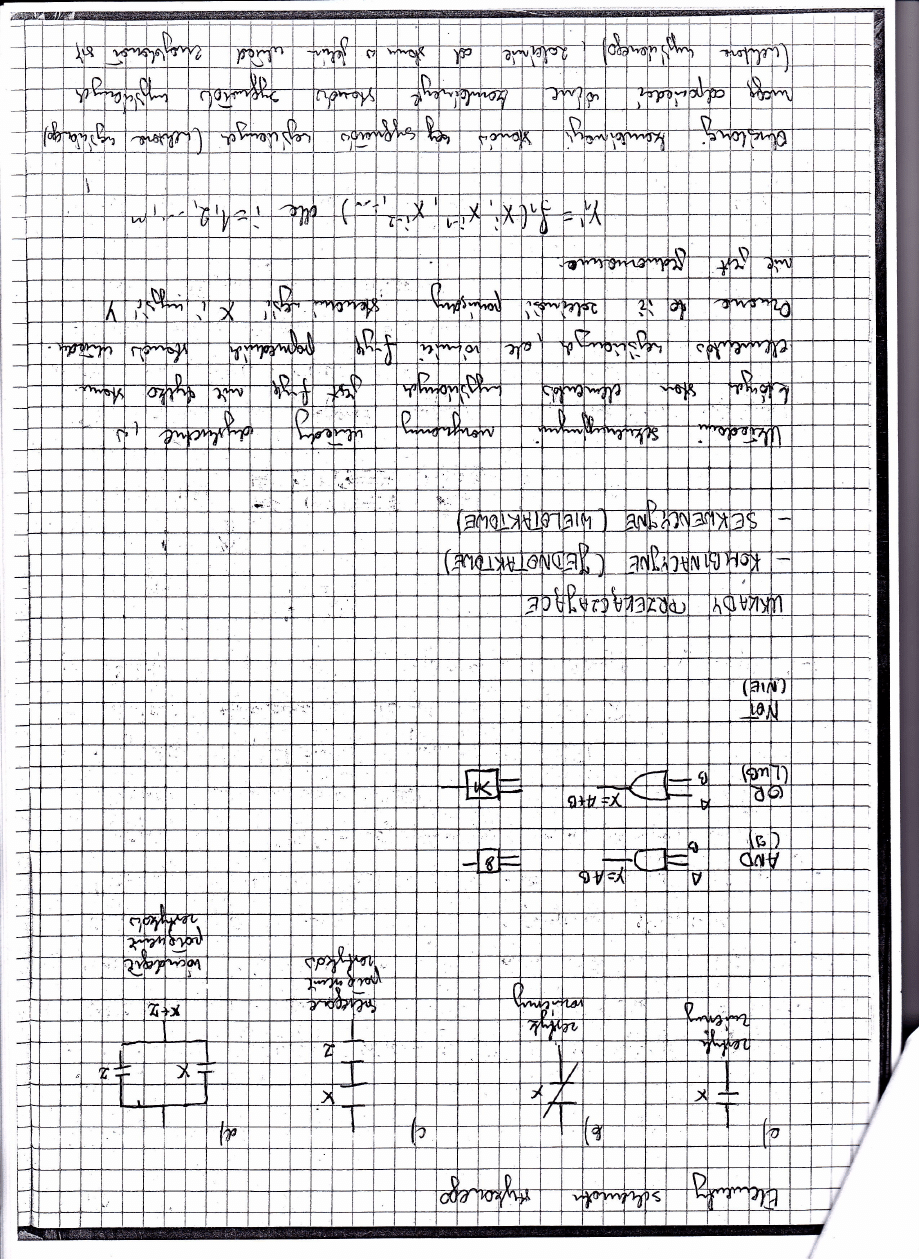 Elementy schematu stykowego
a) b) c) d)
X X X X Z
Z
X+Z
zestyk zwierny
zestyk rozwierny
szeregowe połączenie zestyków
równoległe połączenie zestyków
AND A Y=AB &
(I) B
OR A X=A+B ≥1
(LUB) B
NOT
(NIE)
UKŁADY PRZEŁĄCZAJĄCE
- KOMBINACYJNE (JEDNOTAKTOWE)
- SEKWENCYJNE (WIELOTAKTOWE)
Układami sekwencyjnymi nazywamy układy dyskretne, w
których stan elementów wyjściowych jest f-cją nie tylko stanu
elementów wejściowych, ale również f-cją poprzednich stanów układu.
Oznacza to iż zależność pomiędzy stanami wejść X i wyjść Y
nie jest jednoznaczna.
dla i=1,2,...,m
Określonej kombinacji stanów sygnałów wejściowych (wektora wejściowego)
mogą odpowiadać różne kombinacje stanów sygnałów wyjściowych
(wektora wyjściowego), zależnie od stanu w jakim układ znajdował się